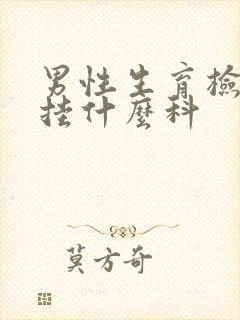 男性生育檢
挂什麼科
莫方奇